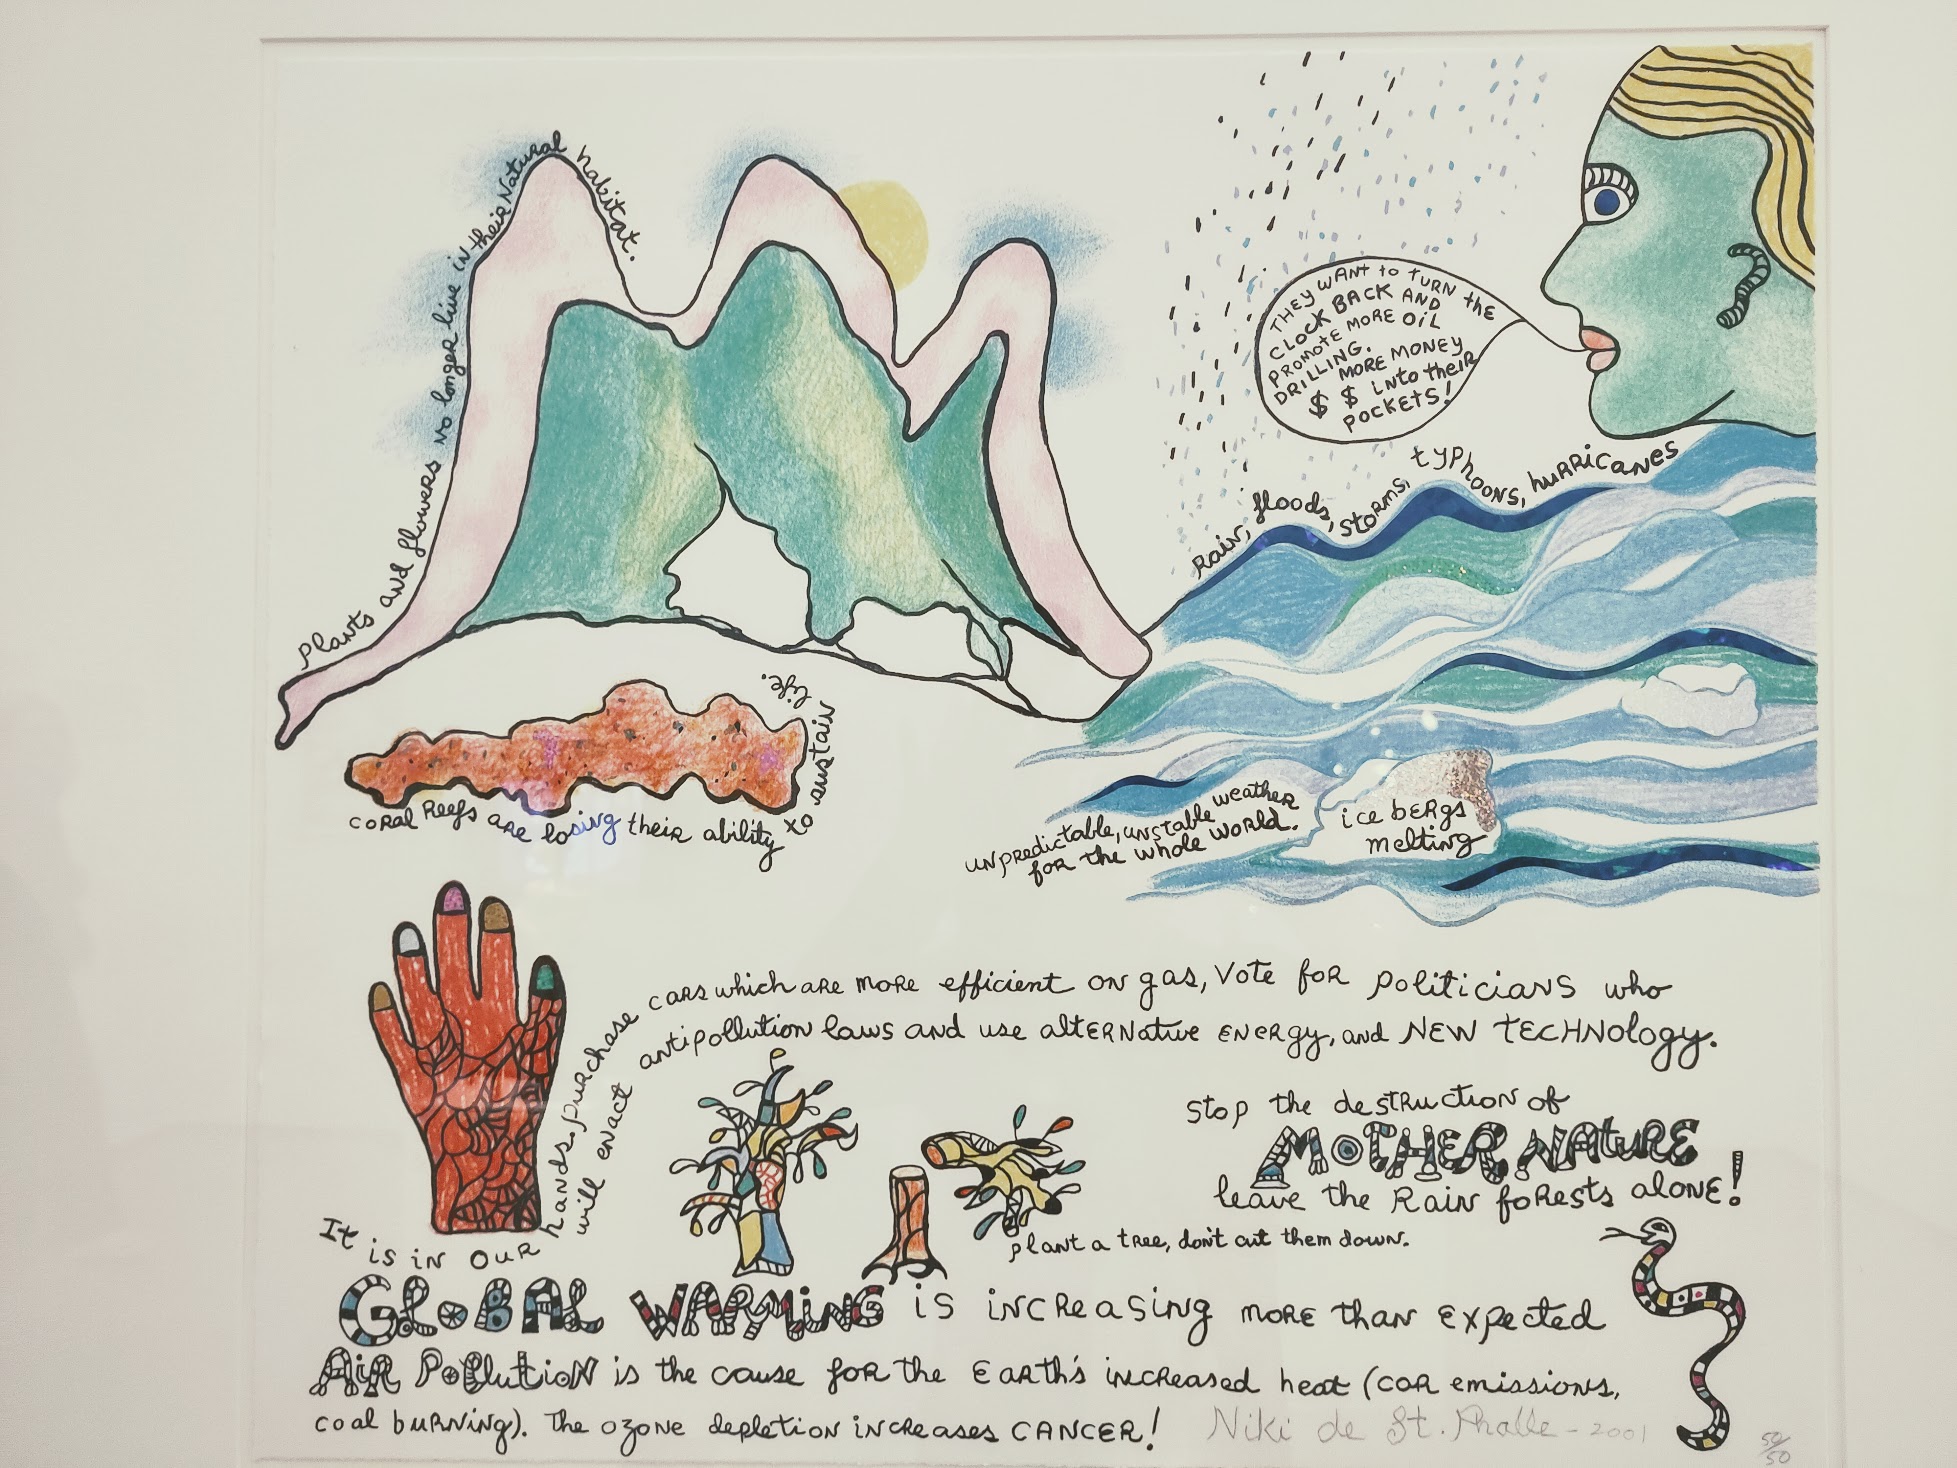 Plants and flowers no longer live in their Natural habitat.
THEY WANT to TURN the
CLOCK BACK AND
PROMOTE MORE OIL
DRILLING.
MORE MONEY
$ $ into their
POCKETS!
Rain, floods, storms, typhoons, hurricanes
coral Reefs are losing their ability to sustain life.
unpredictable, unstable weather
for the whole world.
ice bergs
melting
It is in our hands. purchase cars which are more efficient on gas, Vote for politicians who
will enact antipollution laws and use alternative energy, and NEW TECHNology.
Stop the destruction of
MOTHER NATURE
leave the Rain forests alone!
plant a tree, don't cut them down.
GLOBAL WARMING is increasing more than expected
AiR Pollution is the cause for the Earth's increased heat (car emissions,
coal burning). The ozone depletion increases CANCER!
Niki de St. Phalle - 2001
50/50